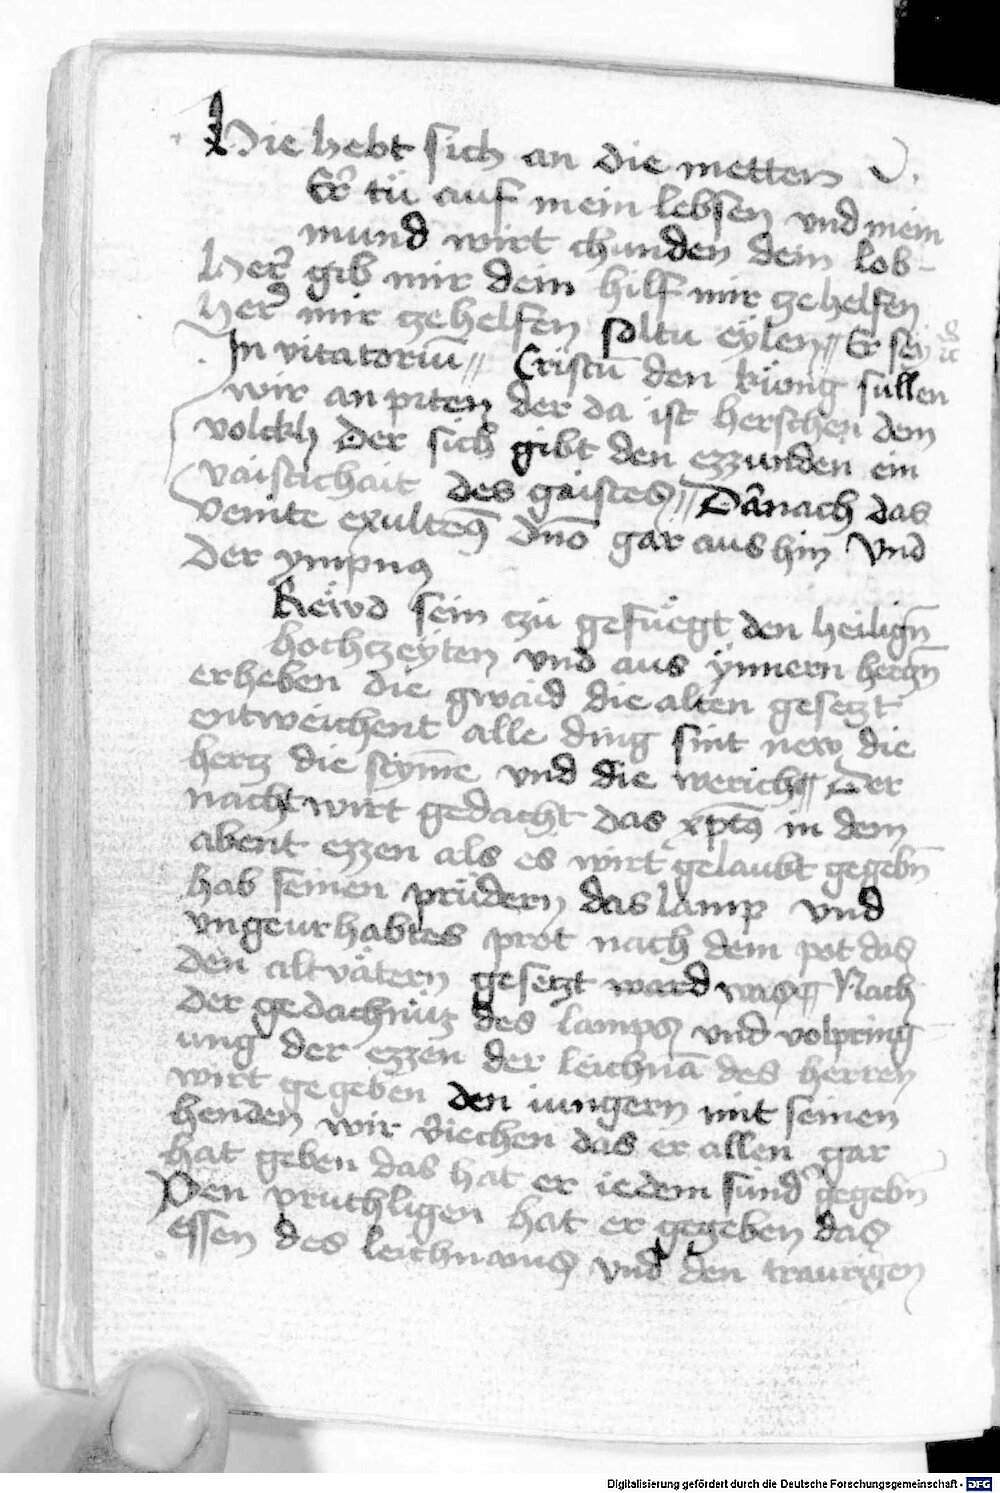 Hie hebt sich an die metten
Er tü auf mein lebsen vnd mein
mund wirt chunden dein lob
Her gib mir dein hilf mir zehelfen
Her mir zehelfen soltu eylen Er sey
In vitatoriū Cristū den küng sullen
wir an peten der da ist herschen dem
volckh Der sich gibt den ezzunden ein
vaistichait des gaistes Dānach das
Venite exultem⁹ dn̄o gar aus hin Vnd
der ympnus
Rewd sein czu gefuegt den heilign̄
hochczeyten vnd aus ynnern herczn̄
erheben die gwaid die alten gesetzt
entweichent alle ding sint new die
hertz die stym̄e vnd die werich Der
nacht wirt gedacht das xpt⁹ in dem
abent ezzen als es wirt gelaubt gegebn̄
hab seinen prüdern das lamp vnd
vngeurhabtes prot nach dem pot das
den altvätern gesetzt ward was Nach
der gedachnüz des lamps vnd volpring
ung der ezzen der leichnā des herren
wirt gegeben den iungern mit seinen
henden wir viechen das er allen gar
hat geben das hat er iedem sund gegebn̄
Den pruchligen hat er gegeben das
essen des leichnams vnd den traurigen
Digitalisierung gefördert durch die Deutsche Forschungsgemeinschaft - DFG